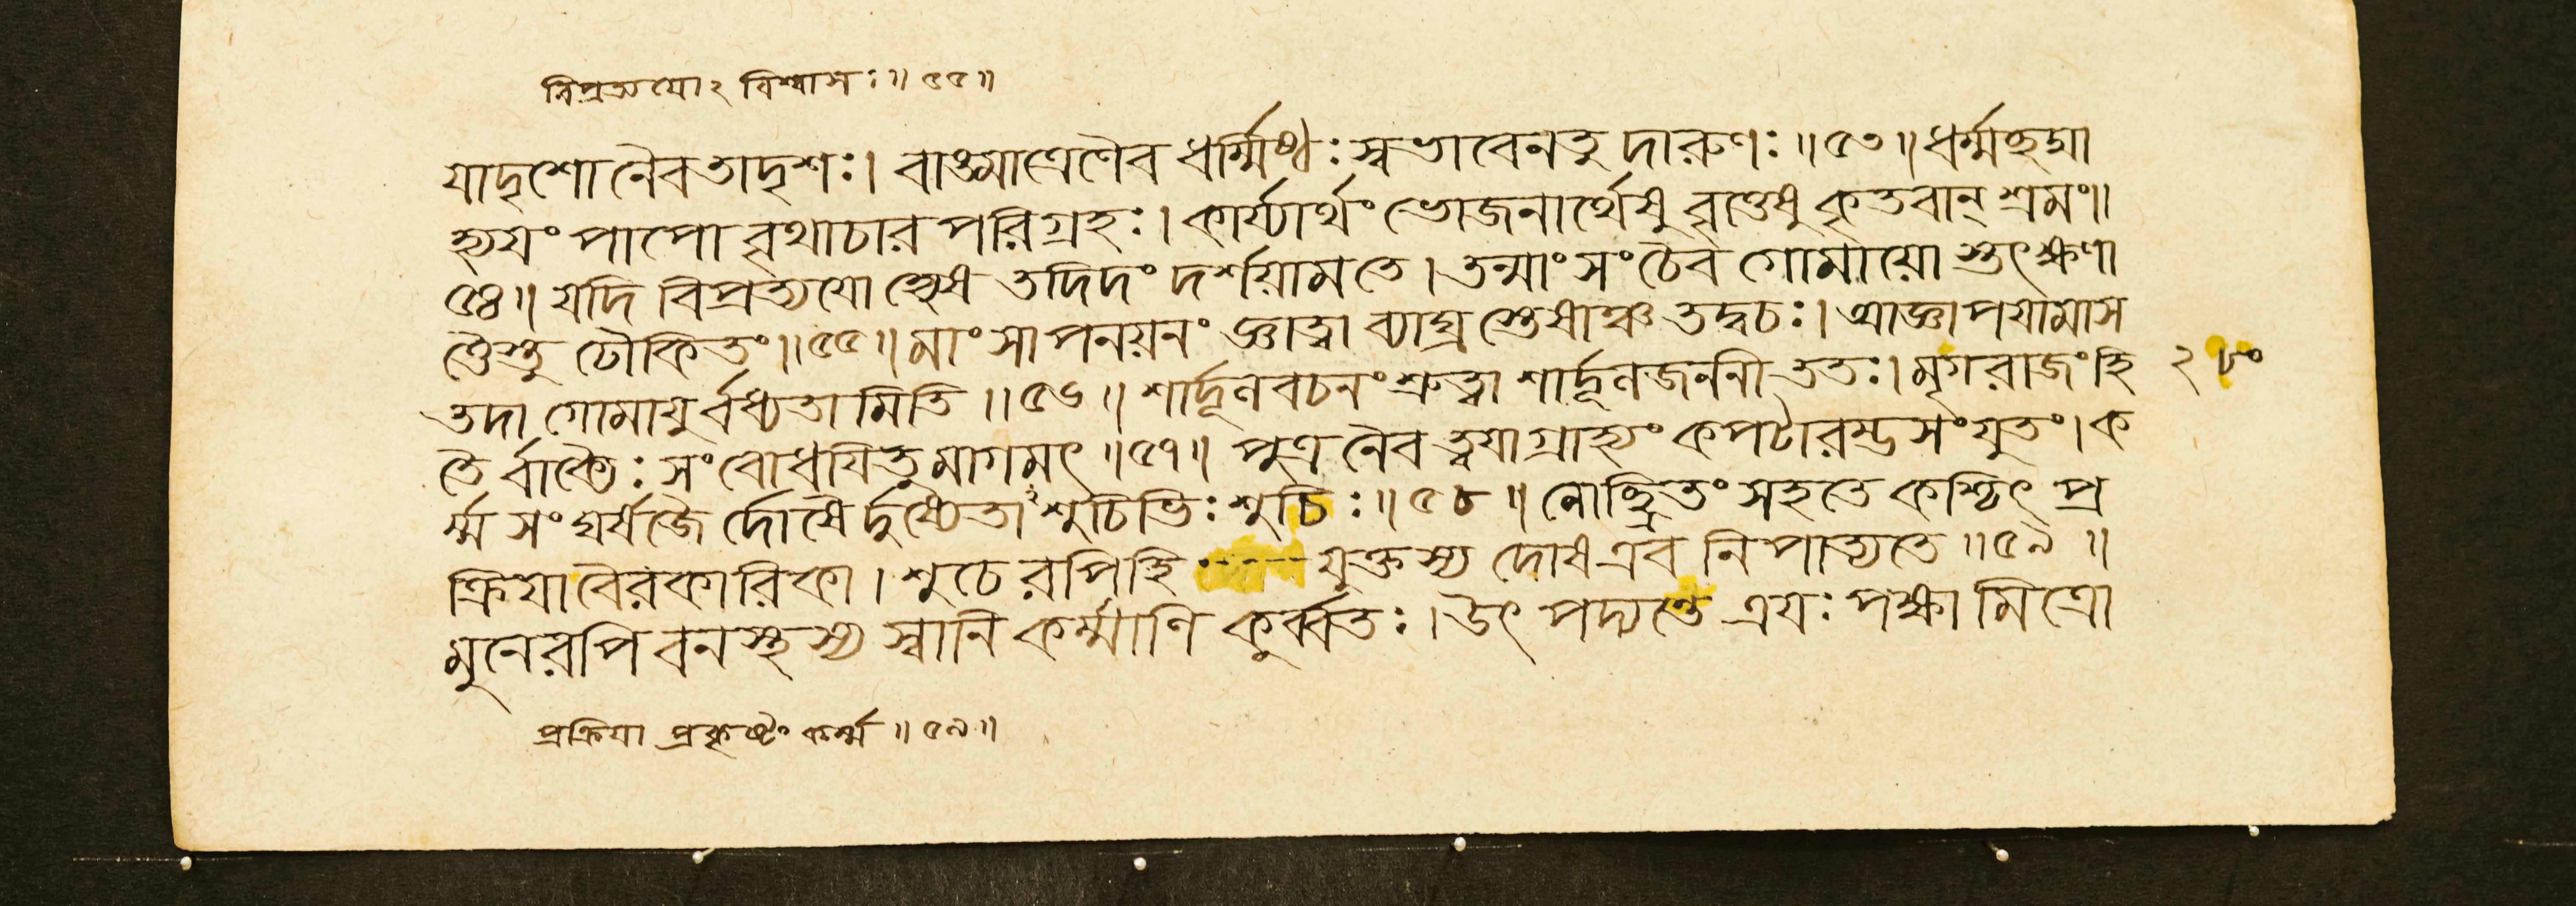 বিপ্রত্যয়োঽবিশ্বাসঃ॥ ৫৫॥
যাদৃশো নৈব তাদৃশঃ। বাঙমাত্রেণৈব ধর্ম্মিষ্ঠঃ স্বভাবেন তু দারুণঃ॥ ৫৩॥ ধর্ম্মছদ্মা
হ্যয়ং পাপো বৃথাচার পরিগ্রহঃ। কার্য্যার্থং ভোজনার্থেষু ব্রতেষু কৃতবান্ শ্রমং॥
৫৪॥ যদি বিপ্রত্যয়ো হ্যেষ তদিদং দর্শয়াম তে। তন্মাংসং চৈব গোমায়োস্তৎক্ষণা
ত্তৈস্তু ঢৌকিতং॥ ৫৫॥ মাংসাপনয়নং জ্ঞাত্বা ব্যাঘ্রস্তেষাঞ্চ তদ্বচঃ। আজ্ঞাপযামাস
তদা গোমাযুর্বধ্যতামিতি॥ ৫৬॥ শার্দূলবচনং শ্রুত্বা শার্দূলজননী ততঃ। মৃগরাজং হি
তৈর্বাক্যৈঃ সংবোধযিতুমাগমৎ॥ ৫৭॥ পুত্র নৈব ত্বযা গ্রাহ্যং কপটারম্ভসংযুতং। ক
র্ম্ম সংঘর্ষজৈর্দোষৈর্দুষ্যেতাশুচিভিঃ শুচিঃ॥ ৫৮॥ নোচ্ছ্রিতং সহতে কশ্চিৎ প্র
ক্রিযা বৈরকারিকা। শুচেরপি হি ---- যুক্তস্য দোষ এব নিপাত্যতে॥ ৫৯॥
মুনেরপি বনস্থস্য স্বানি কর্ম্মাণি কুর্ব্বতঃ। উৎপদ্যন্তে ত্রযঃ পক্ষা মিত্রো
প্রক্রিযা প্রকৃষ্টং কর্ম্ম॥ ৫৯॥